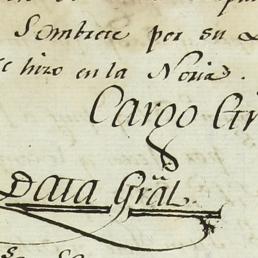 Sombrere per su
hizo en la Noria.
Cargo
Data Grāl.